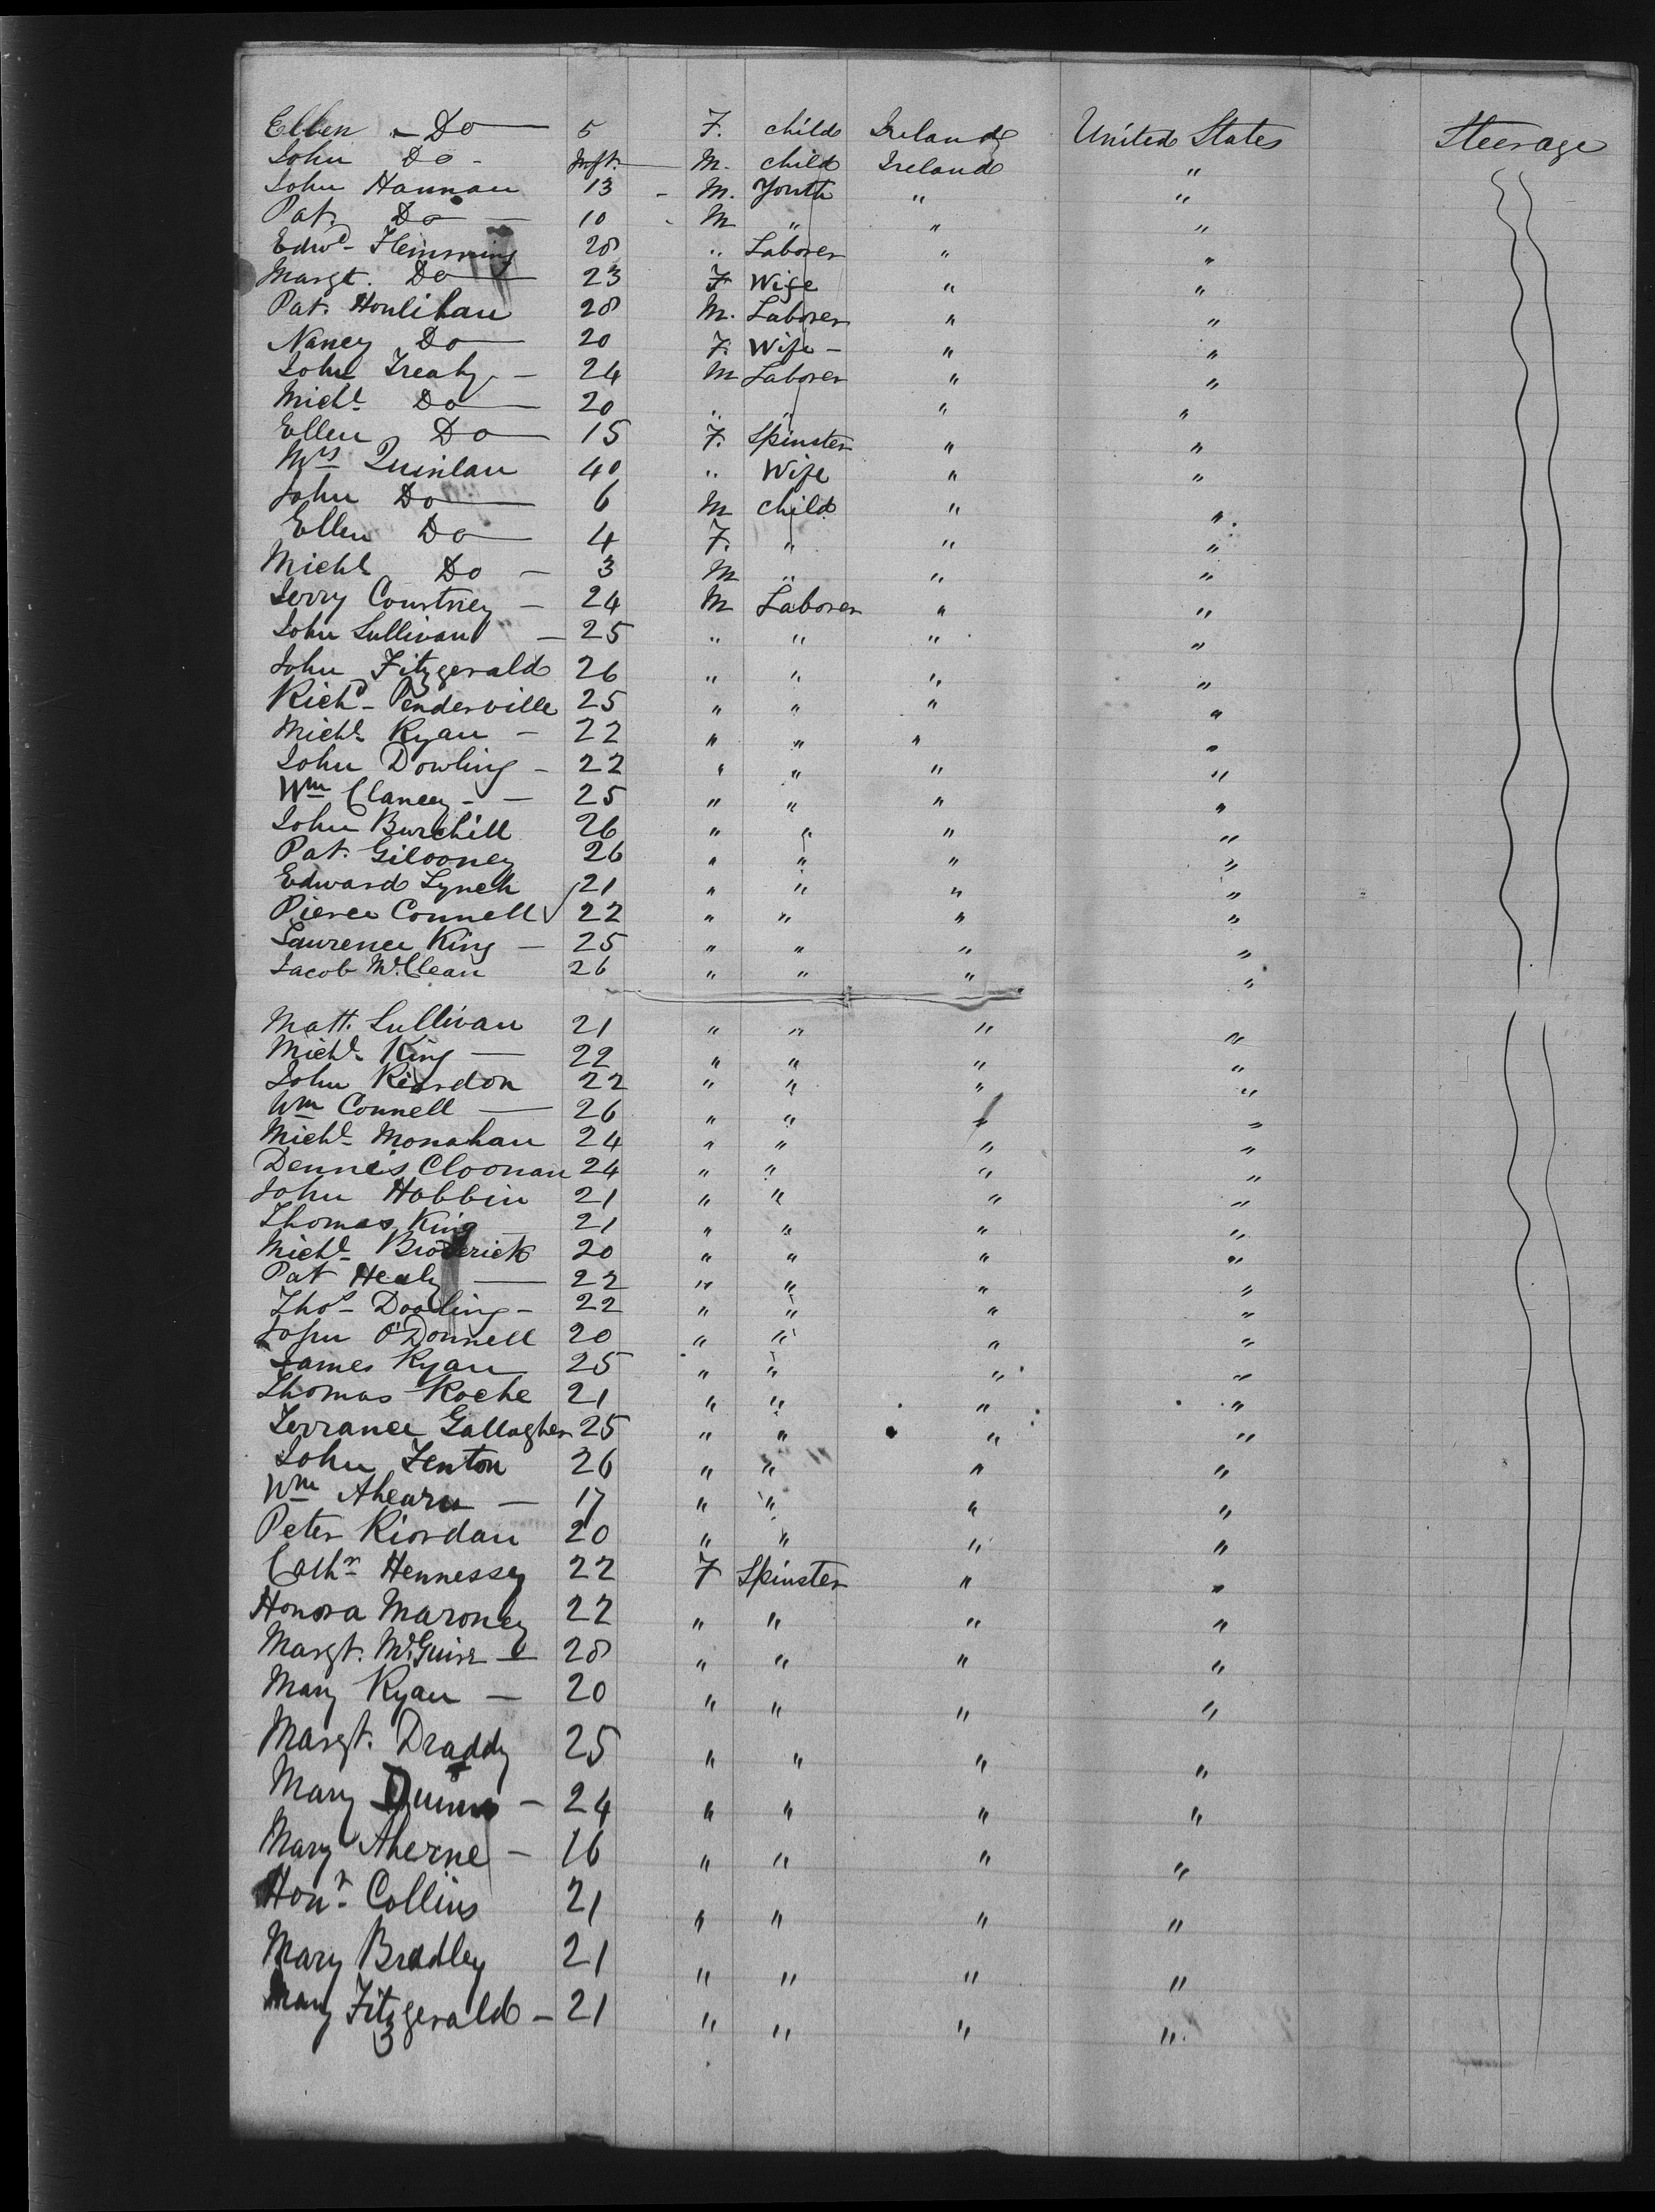 Ellen - Do 5 F. child Ireland United States Steerage
John Do - Inft. M. child Ireland "
John Hannan 13 - M. Youth " "
Pat. Do - 10 - M " " "
Edwd Flemming 28 " Laborer " "
Margt. Do 23 F Wife " "
Pat. Houlihan 28 M. Laborer " "
Nancy Do 20 F. Wife - " "
John Treaty - 24 M Laborer " "
Michl Do 20 " " " "
Ellen Do 15 F. Spinster " "
Mrs Quinlan 40 " Wife " "
John Do 6 M child " "
Ellen Do 4 F. " " "
Michl Do - 3 M " " "
Jerry Courtney - 24 M Laborer " "
John Sullivan - 25 " " " "
John Fitzgerald 26 " " " "
Richd Penderville 25 " " " "
Michl Ryan - 22 " " " "
John Dowling - 22 " " " "
Wm Clancy - - 25 " " " "
John Burchill 26 " " " "
Pat. Gilooney 26 " " " "
Edward Lynch 21 " " " "
Pierce Connell 22 " " " "
Laurence King - 25 " " " "
Jacob McClean 26 " " " "
Matt. Sullivan 21 " " " "
Michl King - 22 " " " "
John Riordon 22 " " " "
Wm Connell - 26 " " " "
Michl Monahan 24 " " " "
Dennis Cloonan 24 " " " "
John Hobbin 21 " " " "
Thomas King 21 " " " "
Michl Broderick 20 " " " "
Pat Healy - 22 " " " "
Thos Dooling - 22 " " " "
John O'Donnell 20 " " " "
James Ryan 25 " " " "
Thomas Roche 21 " " " "
Terrance Gallagher 25 " " " "
John Fenton 26 " " " "
Wm Ahearn - 17 " " " "
Peter Riordan 20 " " " "
Cathr Hennessey 22 F Spinster " "
Honora Maroney 22 " " " "
Margt. McGuire - 28 " " " "
Mary Ryan - 20 " " " "
Margt. Draddy 25 " " " "
Mary Dunn - 24 " " " "
Mary Aherne - 16 " " " "
Honr Collins 21 " " " "
Mary Bradley 21 " " " "
Mary Fitzgerald - 21 " " " "